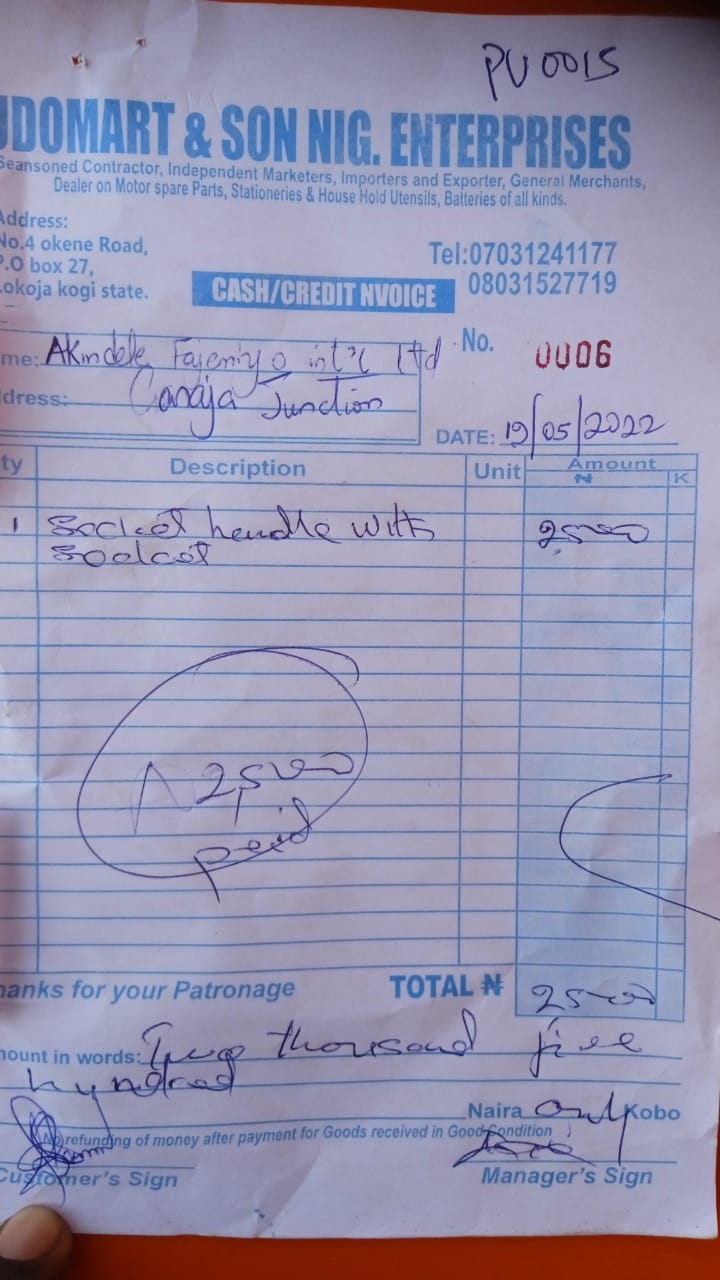 PV 0015
UDOMART & SON NIG. ENTERPRISES
Seansoned Contractor, Independent Marketers, Importers and Exporter, General Merchants,
Dealer on Motor spare Parts, Stationeries & House Hold Utensils, Batteries of all kinds.
Address:
No.4 okene Road,
P.O box 27,
Lokoja kogi state.
Tel:07031241177
08031527719
CASH/CREDIT NVOICE
No. 0006
me: Akindele Fajemiyo int'l ltd
dress: Ganaja Junction
DATE: 19/05/2022
ty Description Unit Amount
₦ K
1 Socket handle with 2500
Socket
₦ 2,500
paid
hanks for your Patronage TOTAL ₦ 2500
mount in words: Two thousand five
hundred
Naira only Kobo
No refunding of money after payment for Goods received in Good Condition
Customer's Sign Manager's Sign